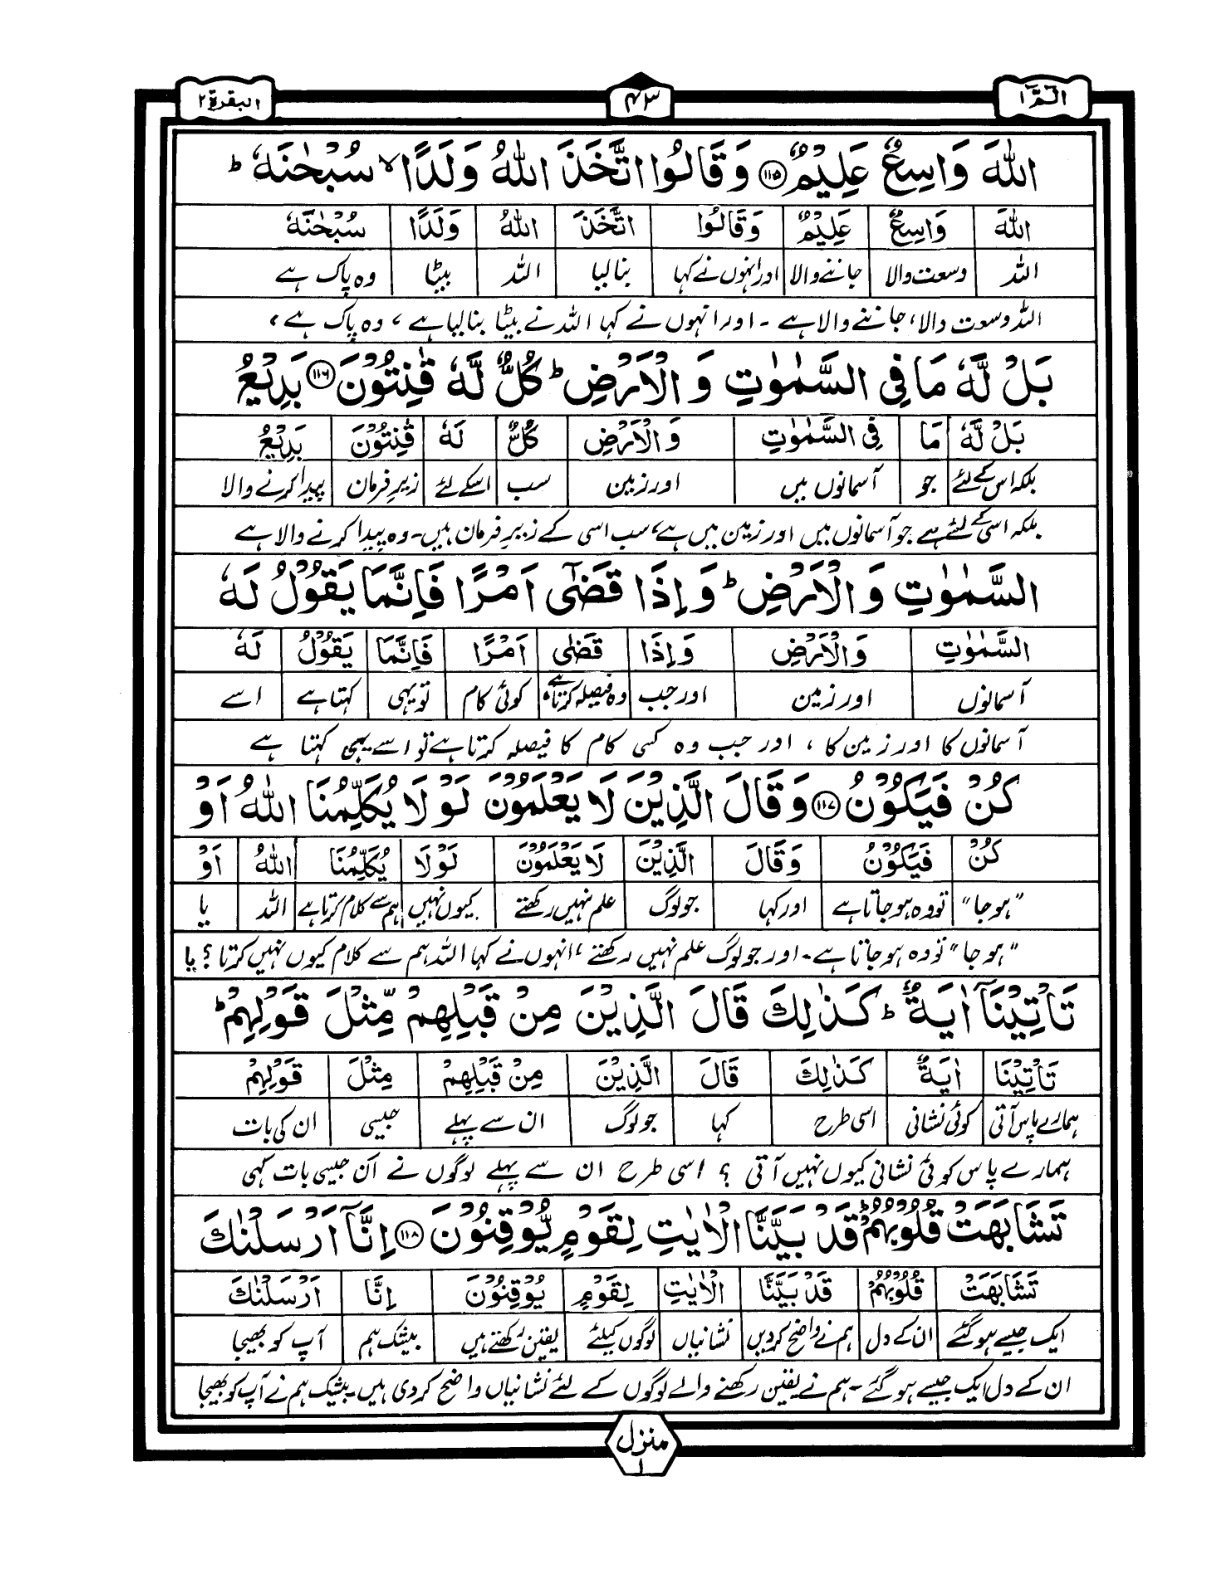 الٓمّٓ ۱
۴۳
البقرة ۲
اللّٰهَ وَاسِعٌ عَلِيْمٌ ﴿۱۱۵﴾ وَقَالُوا اتَّخَذَ اللّٰهُ وَلَدًا ۙ سُبْحٰنَهٗ ؕ
اللّٰهَ وَاسِعٌ عَلِيْمٌ وَقَالُوا اتَّخَذَ اللّٰهُ وَلَدًا سُبْحٰنَهٗ
اللہ وسعت والا جاننے والا اور انہوں نے کہا بنا لیا اللہ بیٹا وہ پاک ہے
اللہ وسعت والا، جاننے والا ہے ۔ اور انہوں نے کہا اللہ نے بیٹا بنا لیا ہے، وہ پاک ہے،
بَلْ لَّهٗ مَا فِى السَّمٰوٰتِ وَ الْاَرْضِ ؕ كُلٌّ لَّهٗ قٰنِتُوْنَ ﴿۱۱۶﴾ بَدِيْعُ
بَلْ لَّهٗ مَا فِى السَّمٰوٰتِ وَ الْاَرْضِ كُلٌّ لَهٗ قٰنِتُوْنَ بَدِيْعُ
بلکہ اس کے لئے جو آسمانوں میں اور زمین سب اسکے لئے زیرِ فرمان پیدا کرنے والا
بلکہ اسی کے لئے ہے جو آسمانوں میں اور زمین میں ہے، سب اسی کے زیرِ فرمان ہیں۔ وہ پیدا کرنے والا ہے
السَّمٰوٰتِ وَ الْاَرْضِ ؕ وَ اِذَا قَضٰٓى اَمْرًا فَاِنَّمَا يَقُوْلُ لَهٗ
السَّمٰوٰتِ وَالْاَرْضِ وَاِذَا قَضٰى اَمْرًا فَاِنَّمَا يَقُوْلُ لَهٗ
آسمانوں اور زمین اور جب وہ فیصلہ کرتا ہے کوئی کام تو یہی کہتا ہے اسے
آسمانوں کا اور زمین کا، اور جب وہ کسی کام کا فیصلہ کرتا ہے تو اسے یہی کہتا ہے
كُنْ فَيَكُوْنُ ﴿۱۱۷﴾ وَقَالَ الَّذِيْنَ لَا يَعْلَمُوْنَ لَوْ لَا يُكَلِّمُنَا اللّٰهُ اَوْ
كُنْ فَيَكُوْنُ وَقَالَ الَّذِيْنَ لَا يَعْلَمُوْنَ لَوْلَا يُكَلِّمُنَا اللّٰهُ اَوْ
"ہو جا" تو وہ ہو جاتا ہے اور کہا جو لوگ علم نہیں رکھتے کیوں نہیں ہم سے کلام کرتا ہے اللہ یا
"ہو جا" تو وہ ہو جاتا ہے۔ اور جو لوگ علم نہیں رکھتے، انہوں نے کہا اللہ ہم سے کلام کیوں نہیں کرتا؟ یا
تَاْتِيْنَآ اٰيَةٌ ؕ كَذٰلِكَ قَالَ الَّذِيْنَ مِنْ قَبْلِهِمْ مِّثْلَ قَوْلِهِمْ ؕ
تَاْتِيْنَا اٰيَةٌ كَذٰلِكَ قَالَ الَّذِيْنَ مِنْ قَبْلِهِمْ مِّثْلَ قَوْلِهِمْ
ہمارے پاس آتی کوئی نشانی اسی طرح کہا جو لوگ ان سے پہلے جیسی ان کی بات
ہمارے پاس کوئی نشانی کیوں نہیں آتی ؟ اسی طرح ان سے پہلے لوگوں نے ان جیسی بات کہی
تَشَابَهَتْ قُلُوْبُهُمْ ؕ قَدْ بَيَّنَّا الْاٰيٰتِ لِقَوْمٍ يُّوْقِنُوْنَ ﴿۱۱۸﴾ اِنَّآ اَرْسَلْنٰكَ
تَشَابَهَتْ قُلُوْبُهُمْ قَدْ بَيَّنَّا الْاٰيٰتِ لِقَوْمٍ يُوْقِنُوْنَ اِنَّا اَرْسَلْنٰكَ
ایک جیسے ہو گئے ان کے دل ہم نے واضح کر دیں نشانیاں لوگوں کیلئے یقین رکھتے ہیں بیشک ہم آپ کو بھیجا
ان کے دل ایک جیسے ہو گئے۔ ہم نے یقین رکھنے والے لوگوں کے لئے نشانیاں واضح کر دی ہیں۔ بیشک ہم نے آپ کو بھیجا
منزل
۱